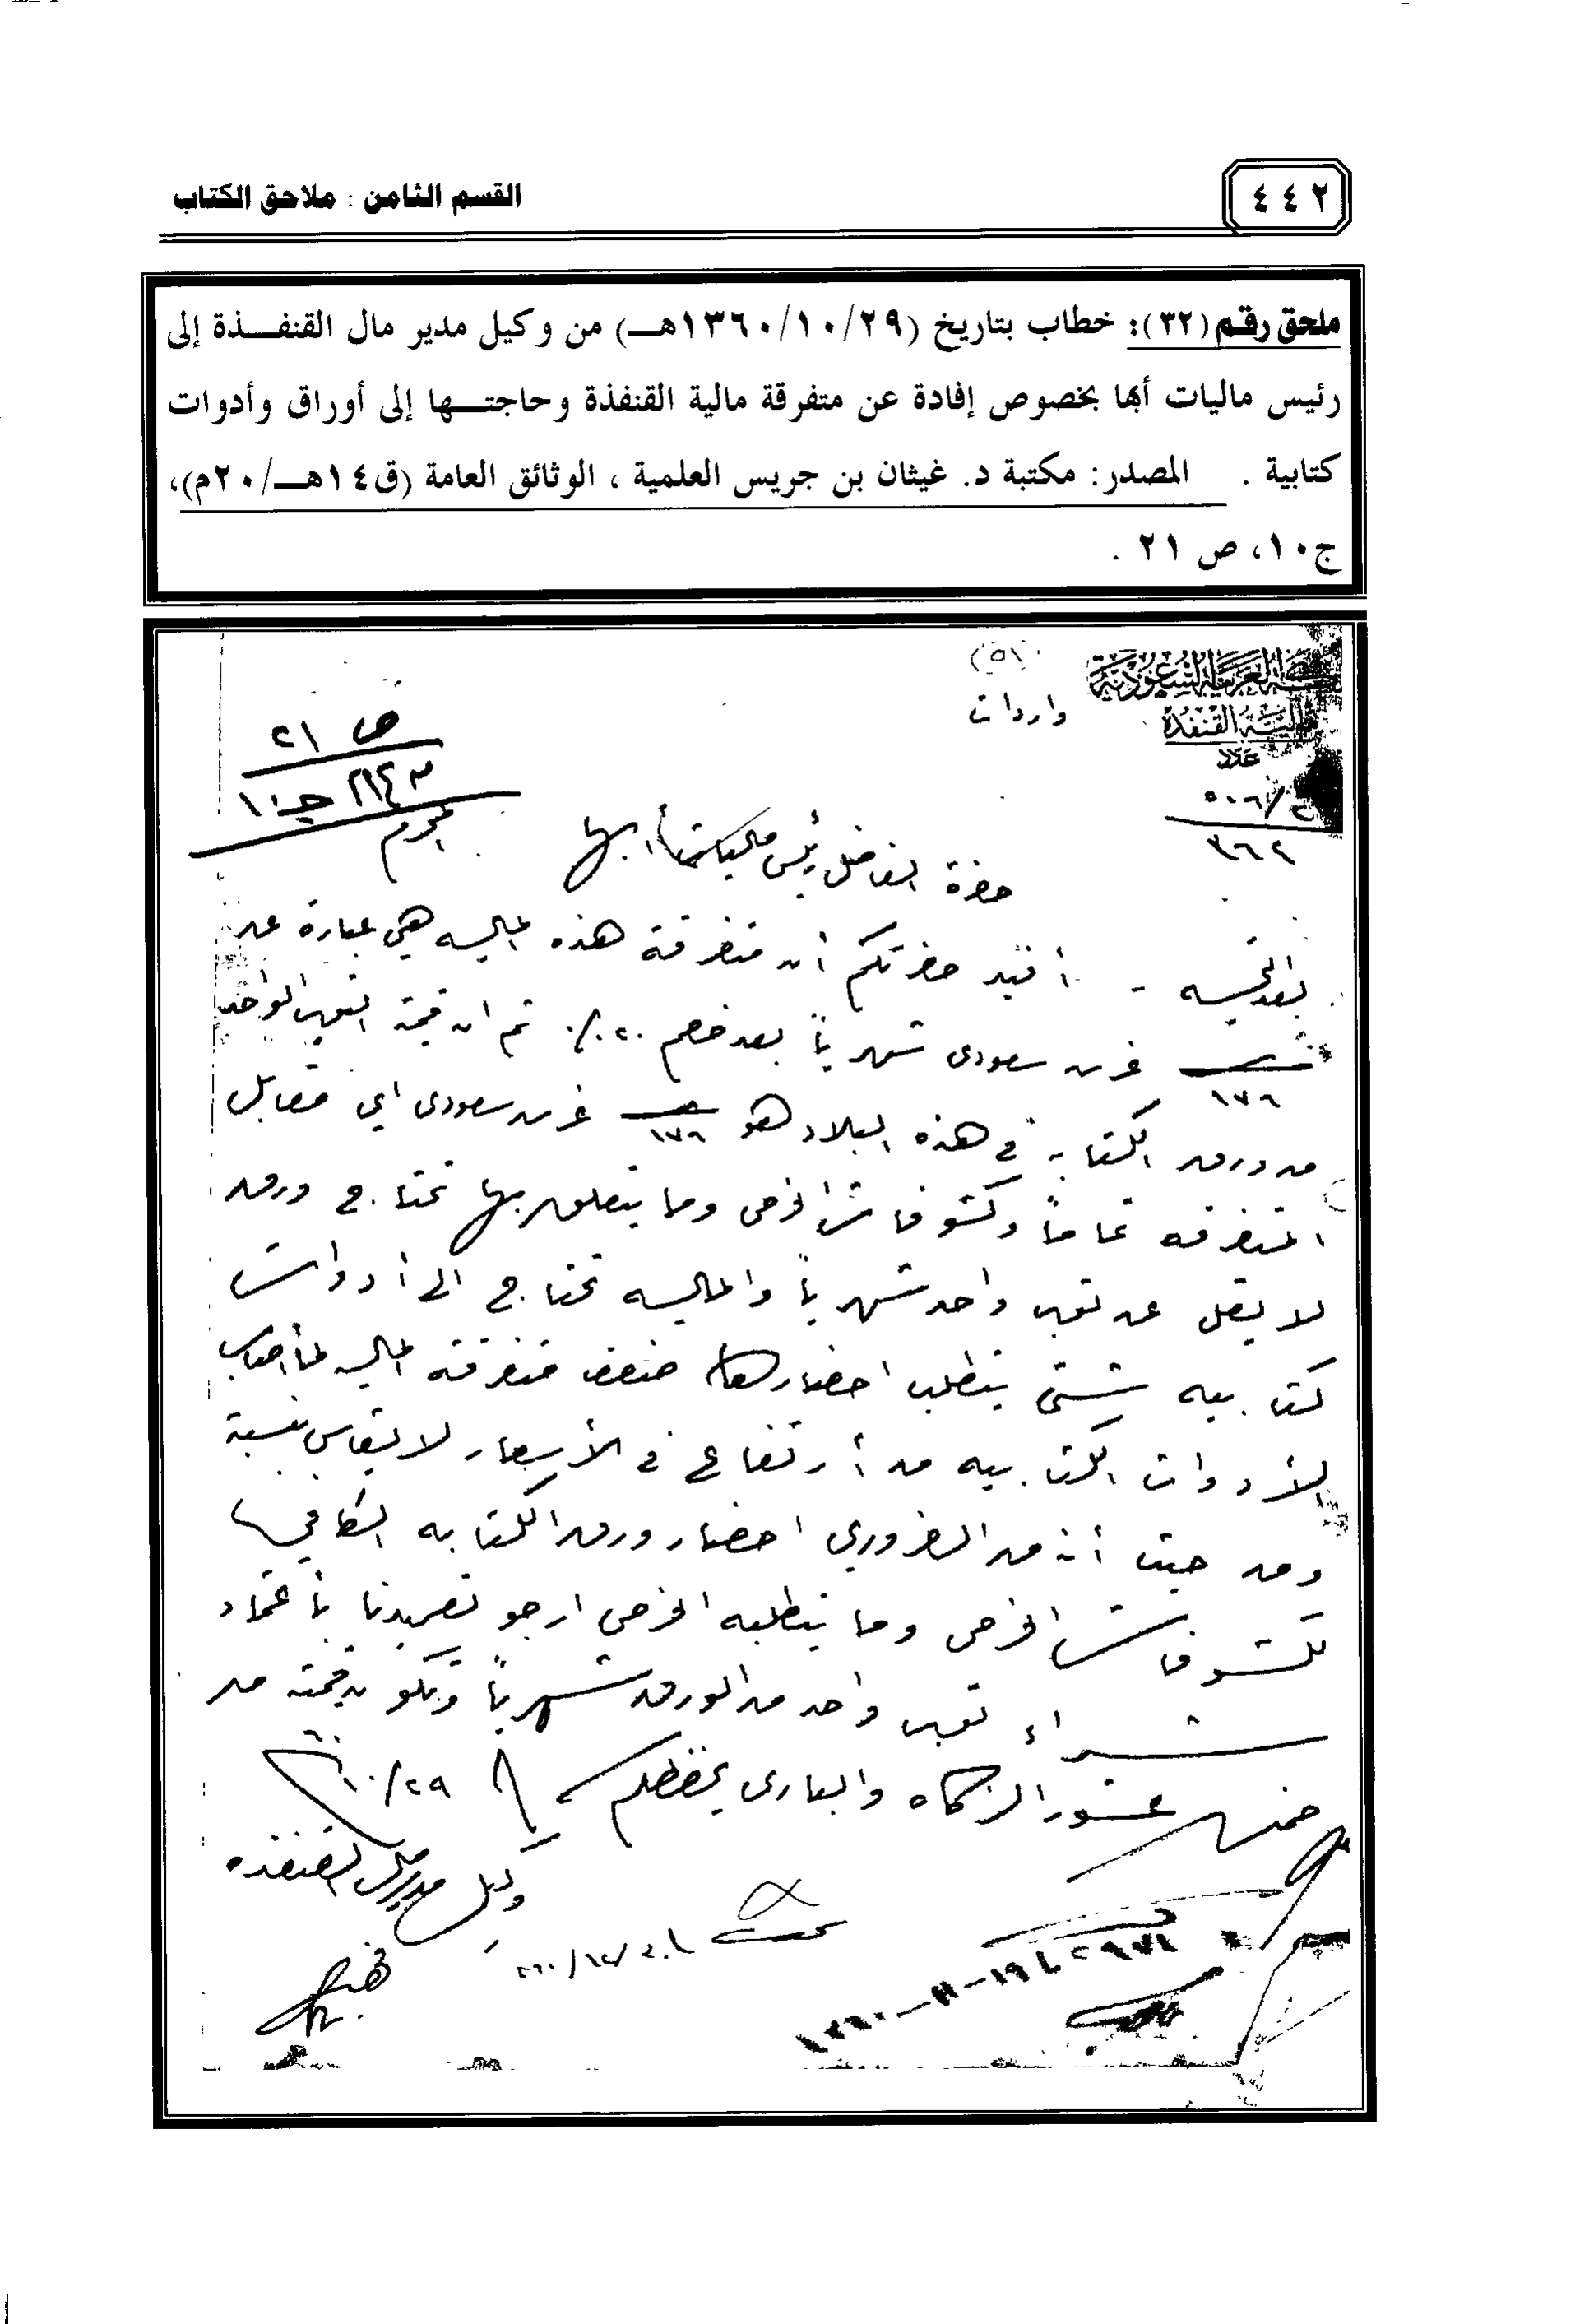 ٤٤٢
القسم الثامن : ملاحق الكتاب
ملحق رقم (٣٢): خطاب بتاريخ (١٣٦٠/١٠/٢٩هـ) من وكيل مدير مال القنفذة إلى
رئيس ماليات أبها بخصوص إفادة عن متفرقة مالية القنفذة وحاجتها إلى أوراق وأدوات
كتابية . المصدر: مكتبة د. غيثان بن جريس العلمية ، الوثائق العامة (ق١٤هـ/٢٠م)،
ج١٠، ص ٢١ .
العربية السعودية
القنفذة
عدد
(٥١)
واردات
ص ٢١
جـ١٠
حضرة الفاضل رئيس ماليات أبها المحترم
بعد التحية - أفيد حضرتكم أن متفرقة هذه المالية هي عبارة عن
١٧٦ غرش سعودى شهرياً بعد خصم ٢٠٪ ثم ان قيمة التعبير الواحد
من ورق الكتابة في هذه البلاد هو ١٧٦ غرش سعودى اي مقابل
المتفرقه تماماً وكشوفات الخرص وما يتعلق بها تحتاج ورق
لا يقل عن تعبير واحد شهرياً والماليه تحتاج الى أدوات
كتابيه شتى يتطلب احضارها ضعف متفرقة الماليه لما أصاب
الأدوات الكتابيه من أرتفاع في الأسعار لا يقاس بنسبة
ومن حيث أنه من الضروري احضار ورق الكتابه الكافي
لكشوفات الخرص وما يتطلبه الخرص ارجو تعميدنا بأعتماد
شراء تعبير واحد من الورق شهرياً وتكون قيمته من
ضمن عشور الزكاه والبارى يحفظكم ١٠/٢٩
وكيل مدير مال القنفذه